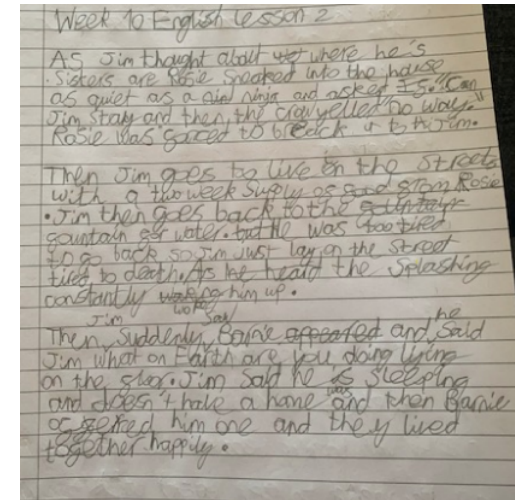 Week 10 English Lesson 2
As Jim thought about where he's
Sisters are Rosie Sneaked into the house
as quiet as a ninja and asked "Can
Jim Stay and then, the crow yelled "no way."
Rosie was to break it to Jim.
Then Jim goes to live on the Streets
with a two week Supply of food from Rosie
. Jim then goes back to the
fountain for water. but He was too tired
to go back so Jim Just lay on the street
tired to death. As he heard the Splashing
constantly woke him up.
Jim Saw he
Then, Suddenly, Barnie appeared and, Said
Jim what on Earth are you doing lying
on the floor. Jim Said he is Sleeping
was
and doesn't have a home and then Barnie
offered him one and they lived
together happily.